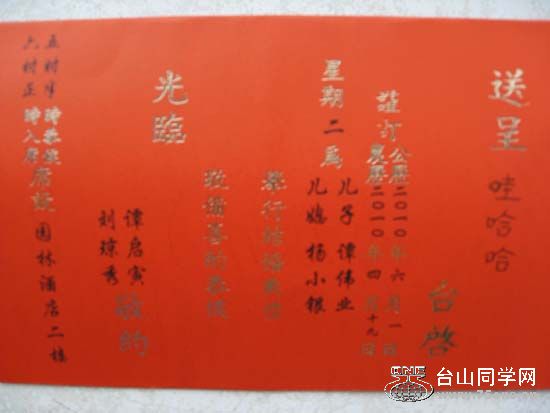 送呈 哇哈哈 台啓
謹訂
公曆二〇一〇年六月一日
農曆二〇一〇年四月十九日
星期二爲
儿子 谭伟业
儿媳 杨小银
舉行結婚典禮
敬備喜酌恭候
光臨
谭启寅
刘琼秀
敬約
五时半時恭候
六时正時入席
席設 园林酒店二楼
台山同学网